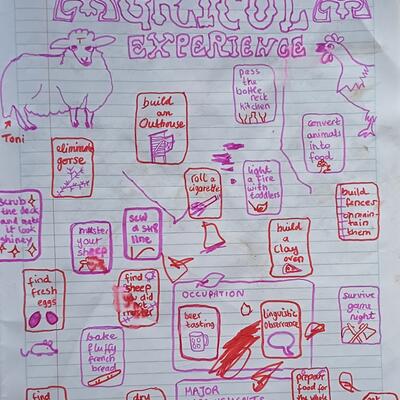 AGRICOLA
EXPERIENCE
pass
the
bottle
neck
kitchen
build
an
Outhouse
convert
animals
into
food
Toni
eliminate
gorse
roll a
cigarette
light
a fire
with
toddlers
scrub
the deck
and make
it look
shiney
muster
your
sheep
sew
a str8
line
build
a
clay
oven
build
fences
or main-
tain
them
find
fresh
eggs
find
sheep
you did
not
muster
OCCUPATION
beer
tasting
linguistic
observance
survive
game
night
bake
fluffy
french
bread
MAJOR
prepare
food for
the whole
find
dry